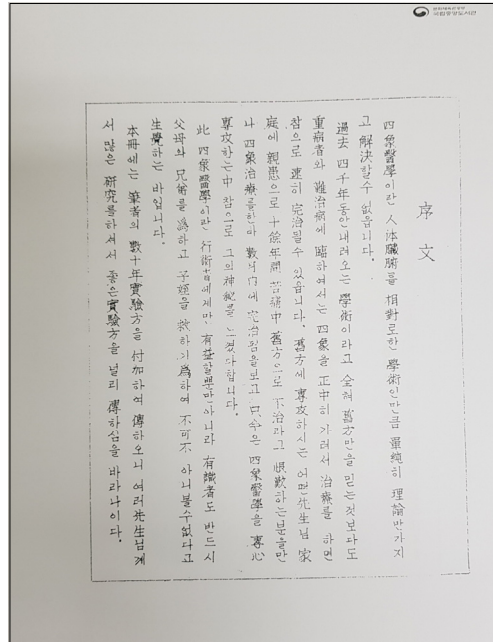 문화체육관광부
국립중앙도서관
序文
四象醫學이란 人体臟腑를 相對로한 學術인만큼 單純히 理論만가지
고 解決할수 없읍니다.
過去 四千年동안내려오는 學術이라고 全혀 舊方만을 믿는것보다도
重病者와 難治病에 臨하여서는 四象을 正中히 가려서 治療를 하면
참으로 速히 完治될수 있읍니다. 舊方에 專攻하시는 어떤先生님 家
庭에 親患으로 十餘年間 苦痛中 舊方으로 不治라고 恨歎하는분을만
나 四象治療를한바 數日內에 完治됨을보고 只今은 四象醫學을 專心
專攻하는中 참으로 그의神秘를 느꼈다합니다.
此 四象醫學이란 行術者에게만 有益할뿐만아니라 有識者도 반드시
父母와 兄弟를 爲하고 子姪을 救하기爲하여 不可不 아니볼수없다고
生覺하는 바입니다.
本冊에는 筆者의 數十年實驗方을 付加하여 傳하오니 여러先生님께
서 많은 研究를하셔서 좋은實驗方을 널리 傳하심을 바라나이다.